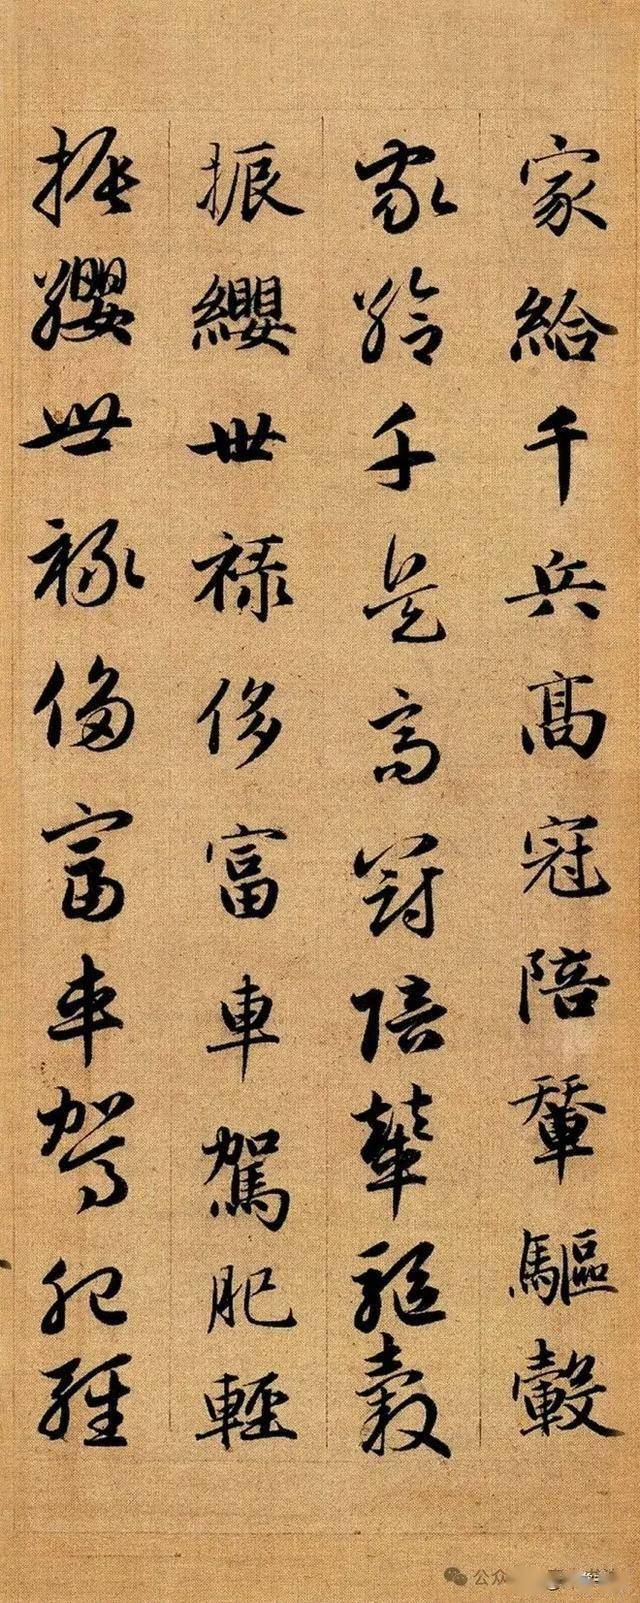 家給千兵高冠陪輦驅轂
家給千兵高冠陪輦驅轂
振纓世祿侈富車駕肥輕
振纓世祿侈富車駕肥輕
公众